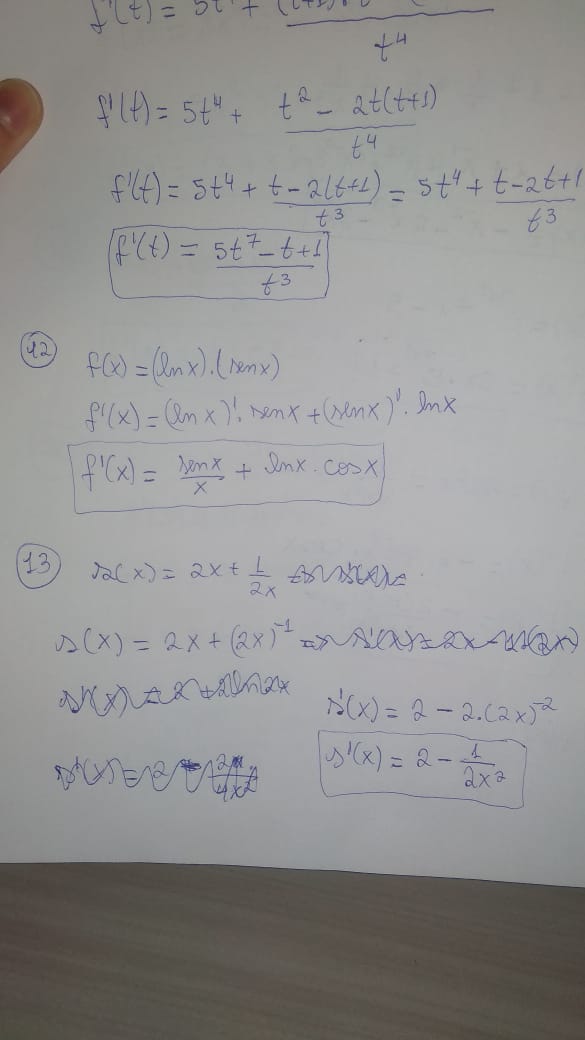 f'(t) = 5t⁴ + (t+1)
t⁴
f'(t) = 5t⁴ + t² - 2t(t+1)
t⁴
f'(t) = 5t⁴ + t - 2(t+1) = 5t⁴ + t - 2t + 1
t³ t³
f'(t) = 5t⁷ - t + 1
t³
12
f(x) = (ln x).(sen x)
f'(x) = (ln x)'. sen x + (sen x)'. ln x
f'(x) = sen x / x + ln x . cos x
13
s(x) = 2x + 1/2x
s(x) = 2x + (2x)⁻¹
s'(x) = 2 - 2.(2x)⁻²
s'(x) = 2 - 1/2x²